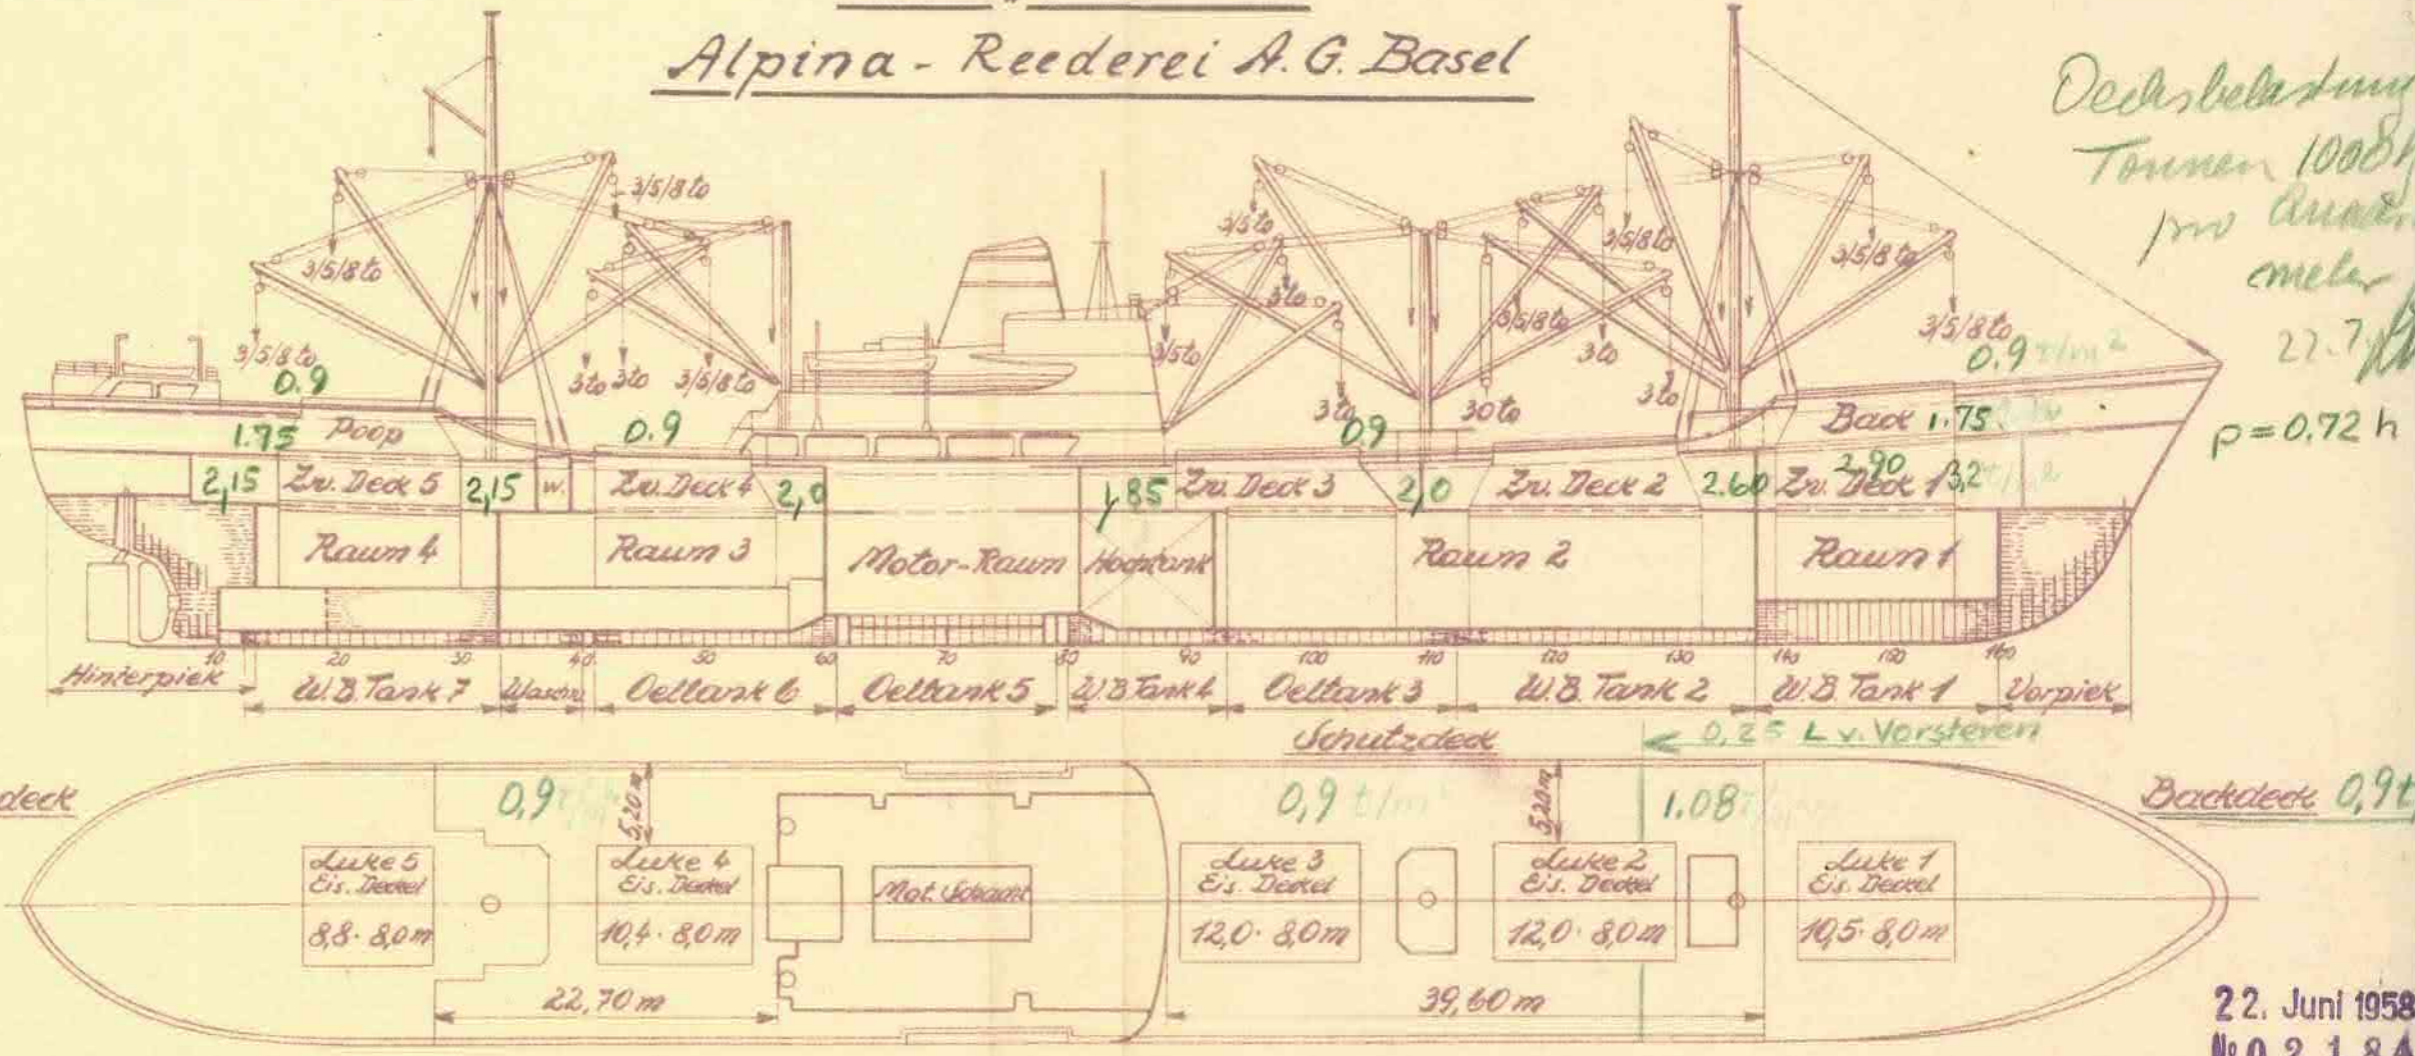 Alpina - Reederei A.G. Basel
Decksbelastung
Tonnen
pro
meter
22.7.
p=0.72 h
3/5/8 to
3/5/8 to
3/5/8 to
3 to
3 to
3/5/8 to
3/5 to
3 to
3/5 to
3 to
3/5/8 to
3/5/8 to
3 to
30 to
3 to
3/5/8 to
3/5/8 to
0.9
0.9
0.9
0.9 t/m²
1.75 Poop
Back 1.75
2,15 Zw. Deck 5 2,15 W. Zw. Deck 4 2,0
1,85 Zw. Deck 3 2,0 Zw. Deck 2 2.60 Zw. Deck 1 3,2
2.90
Raum 4 Raum 3 Motor-Raum Hochtank Raum 2 Raum 1
10 20 30 40 50 60 70 80 90 100 110 120 130 140 150 160
Hinterpiek W.B. Tank 7 Waschw. Oeltank 6 Oeltank 5 W.B. Tank 4 Oeltank 3 W.B. Tank 2 W.B. Tank 1 Vorpiek
Schutzdeck
0,25 L v. Vorsteven
deck
0,9
5,20 m
0,9 t/m²
5,20 m
1.08
Backdeck 0,9t
Luke 5
Eis. Deckel
8,8 · 8,0 m
Luke 4
Eis. Deckel
10,4 · 8,0 m
Mot. Schacht
Luke 3
Eis. Deckel
12,0 · 8,0 m
Luke 2
Eis. Deckel
12,0 · 8,0 m
Luke 1
Eis. Deckel
10,5 · 8,0 m
22,70 m
39,60 m
22. Juni 1958
№ 0 2 1 8 4